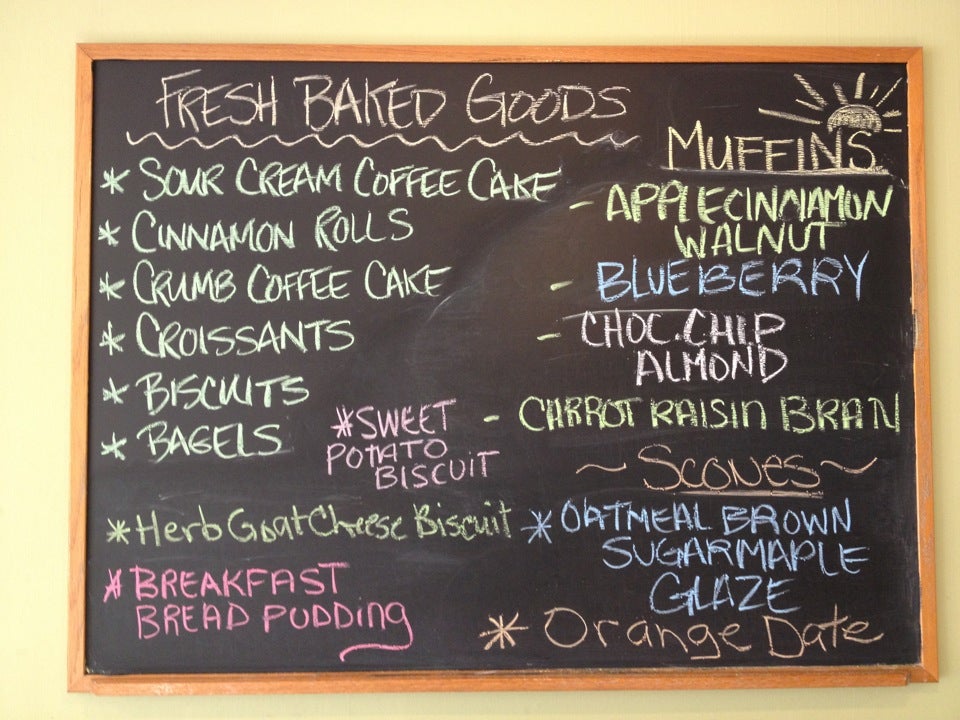 FRESH BAKED GOODS
* SOUR CREAM COFFEE CAKE
* CINNAMON ROLLS
* CRUMB COFFEE CAKE
* CROISSANTS
* BISCUITS
* BAGELS
* SWEET
POTATO
BISCUIT
* Herb Goat Cheese Biscuit
* BREAKFAST
BREAD PUDDING
MUFFINS
- APPLE CINNAMON
WALNUT
- BLUEBERRY
- CHOC. CHIP
ALMOND
- CARROT RAISIN BRAN
~ SCONES ~
* OATMEAL BROWN
SUGAR MAPLE
GLAZE
* Orange Date